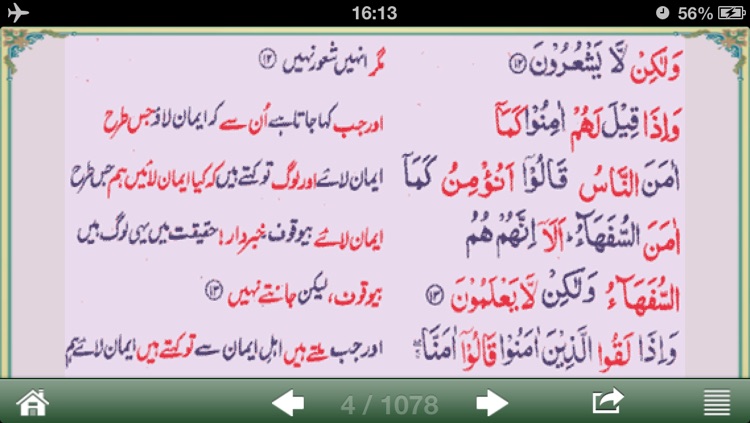 16:13
56%
وَلٰكِنْ لَّا يَشْعُرُوْنَ ۝۱۲ مگر انہیں شعور نہیں ۝۱۲
وَاِذَا قِيْلَ لَهُمْ اٰمِنُوْا كَمَاۤ اور جب کہا جاتا ہے اُن سے کہ ایمان لاؤ جس طرح
اٰمَنَ النَّاسُ قَالُوْۤا اَنُؤْمِنُ كَمَاۤ ایمان لائے اور لوگ تو کہتے ہیں کہ کیا ایمان لائیں ہم جس طرح
اٰمَنَ السُّفَهَآءُ ؕ اَلَاۤ اِنَّهُمْ هُمُ ایمان لائے بیوقوف۔ خبردار! حقیقت میں یہی لوگ ہیں
السُّفَهَآءُ وَلٰكِنْ لَّا يَعْلَمُوْنَ ۝۱۳ بیوقوف، لیکن جانتے نہیں ۝۱۳
وَاِذَا لَقُوا الَّذِيْنَ اٰمَنُوْا قَالُوْۤا اٰمَنَّا اور جب ملتے ہیں اہلِ ایمان سے تو کہتے ہیں ایمان لائے ہم
4 / 1078